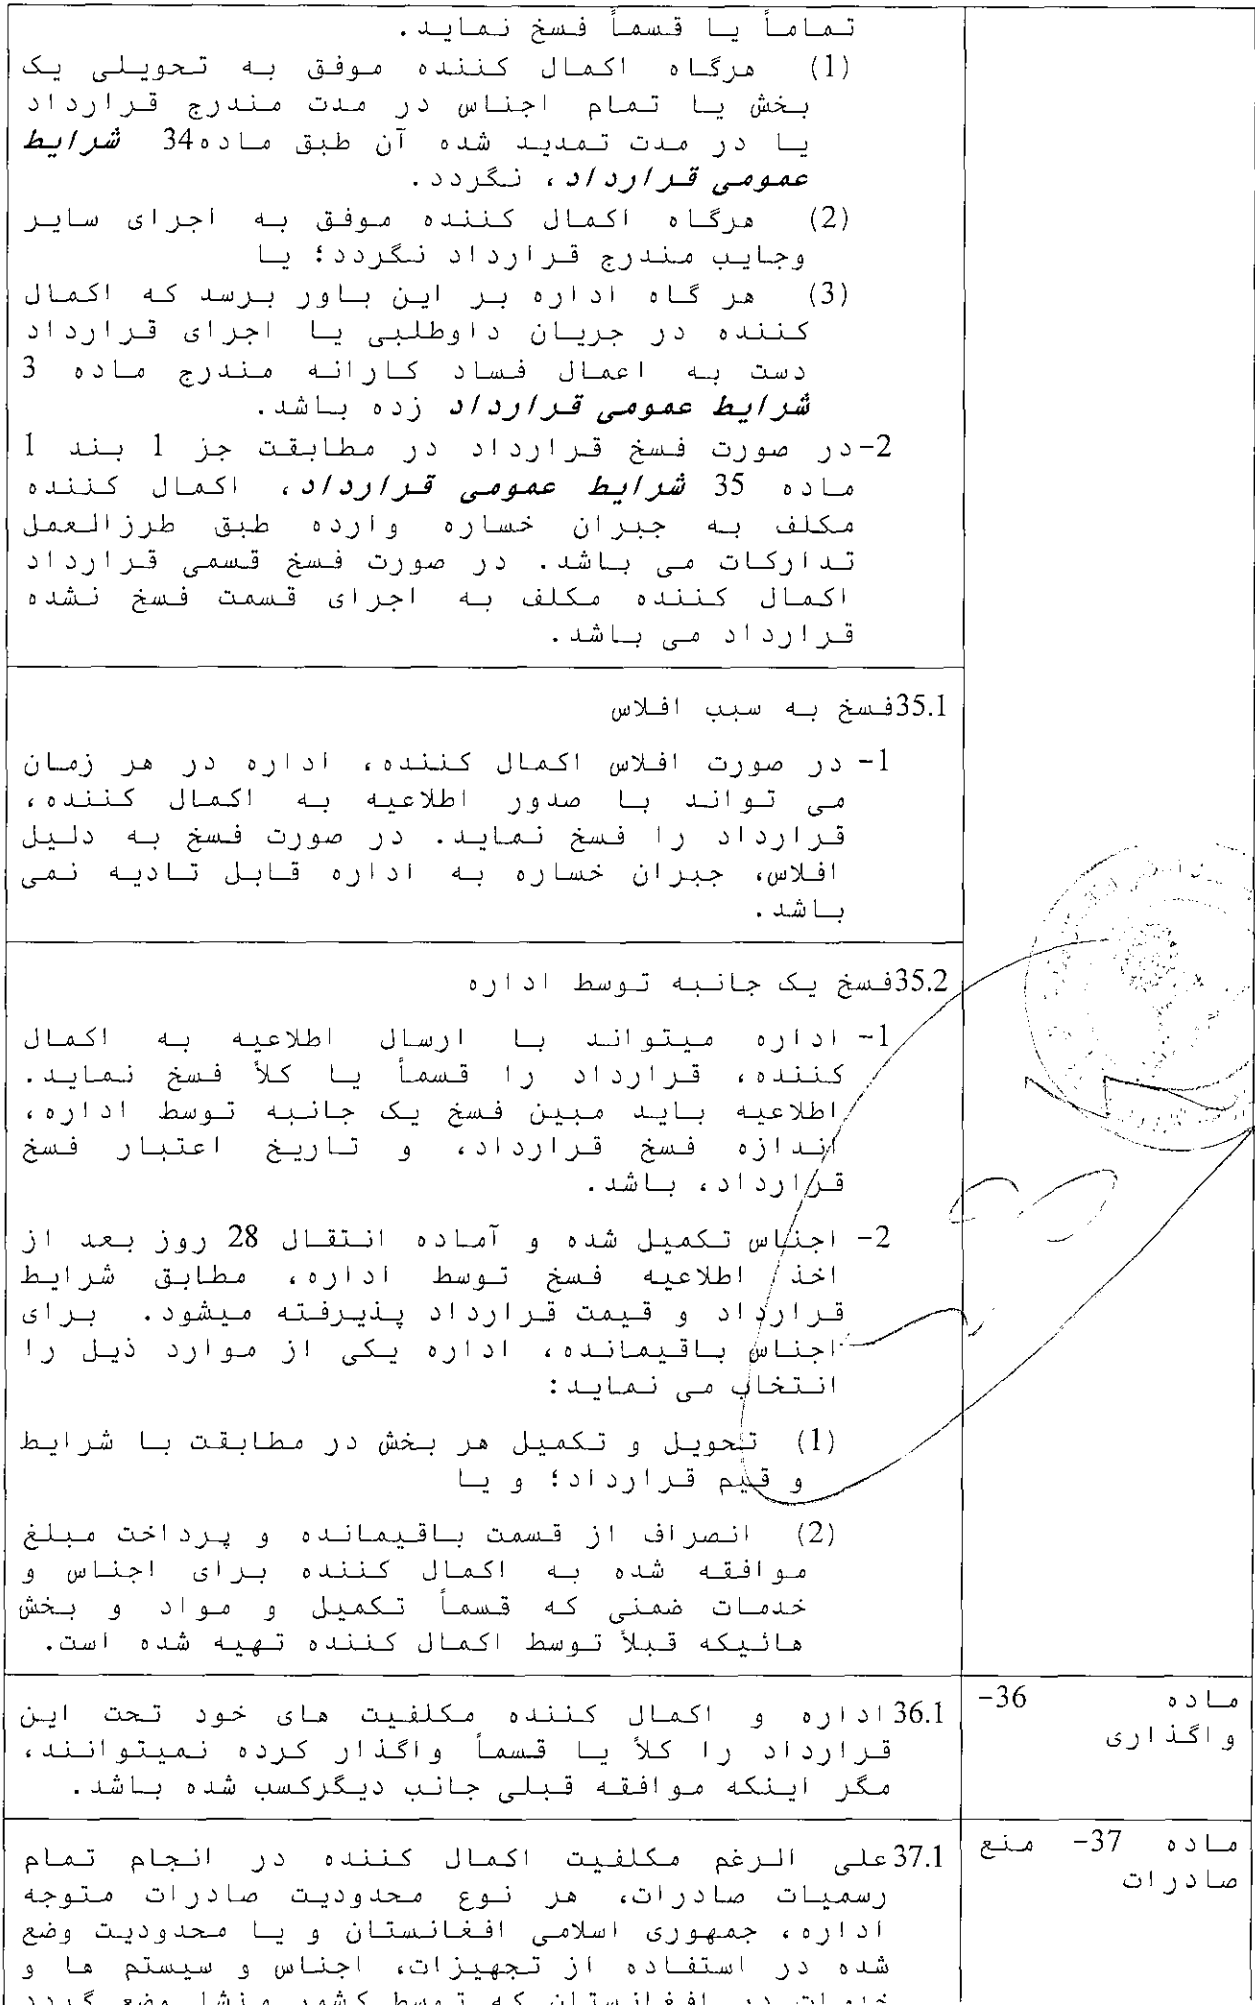 تماماً یا قسماً فسخ نماید.
(1) هرگاه اکمال کننده موفق به تحویلی یک
بخش یا تمام اجناس در مدت مندرج قرارداد
یا در مدت تمدید شده آن طبق ماده34 شرایط
عمومی قرارداد، نگردد.
(2) هرگاه اکمال کننده موفق به اجرای سایر
وجایب مندرج قرارداد نگردد؛ یا
(3) هر گاه اداره بر این باور برسد که اکمال
کننده در جریان داوطلبی یا اجرای قرارداد
دست به اعمال فساد کارانه مندرج ماده 3
شرایط عمومی قرارداد زده باشد.
2-در صورت فسخ قرارداد در مطابقت جز 1 بند 1
ماده 35 شرایط عمومی قرارداد، اکمال کننده
مکلف به جبران خساره وارده طبق طرزالعمل
تدارکات می باشد. در صورت فسخ قسمی قرارداد
اکمال کننده مکلف به اجرای قسمت فسخ نشده
قرارداد می باشد.
35.1فسخ به سبب افلاس
1- در صورت افلاس اکمال کننده، اداره در هر زمان
می تواند با صدور اطلاعیه به اکمال کننده،
قرارداد را فسخ نماید. در صورت فسخ به دلیل
افلاس، جبران خساره به اداره قابل تادیه نمی
باشد.
35.2فسخ یک جانبه توسط اداره
1- اداره میتواند با ارسال اطلاعیه به اکمال
کننده، قرارداد را قسماً یا کلاً فسخ نماید.
اطلاعیه باید مبین فسخ یک جانبه توسط اداره،
اندازه فسخ قرارداد، و تاریخ اعتبار فسخ
قرارداد، باشد.
2- اجناس تکمیل شده و آماده انتقال 28 روز بعد از
اخذ اطلاعیه فسخ توسط اداره، مطابق شرایط
قرارداد و قیمت قرارداد پذیرفته میشود. برای
اجناس باقیمانده، اداره یکی از موارد ذیل را
انتخاب می نماید:
(1) تحویل و تکمیل هر بخش در مطابقت با شرایط
و قیم قرارداد؛ و یا
(2) انصراف از قسمت باقیمانده و پرداخت مبلغ
موافقه شده به اکمال کننده برای اجناس و
خدمات ضمنی که قسماً تکمیل و مواد و بخش
هائیکه قبلاً توسط اکمال کننده تهیه شده است.
ماده 36-
واگذاری
36.1اداره و اکمال کننده مکلفیت های خود تحت این
قرارداد را کلاً یا قسماً واگذار کرده نمیتوانند،
مگر اینکه موافقه قبلی جانب دیگرکسب شده باشد.
ماده 37- منع
صادرات
37.1علی الرغم مکلفیت اکمال کننده در انجام تمام
رسمیات صادرات، هر نوع محدودیت صادرات متوجه
اداره، جمهوری اسلامی افغانستان و یا محدودیت وضع
شده در استفاده از تجهیزات، اجناس و سیستم ها و
خدمات در افغانستان که توسط کشور منشا وضع گردد